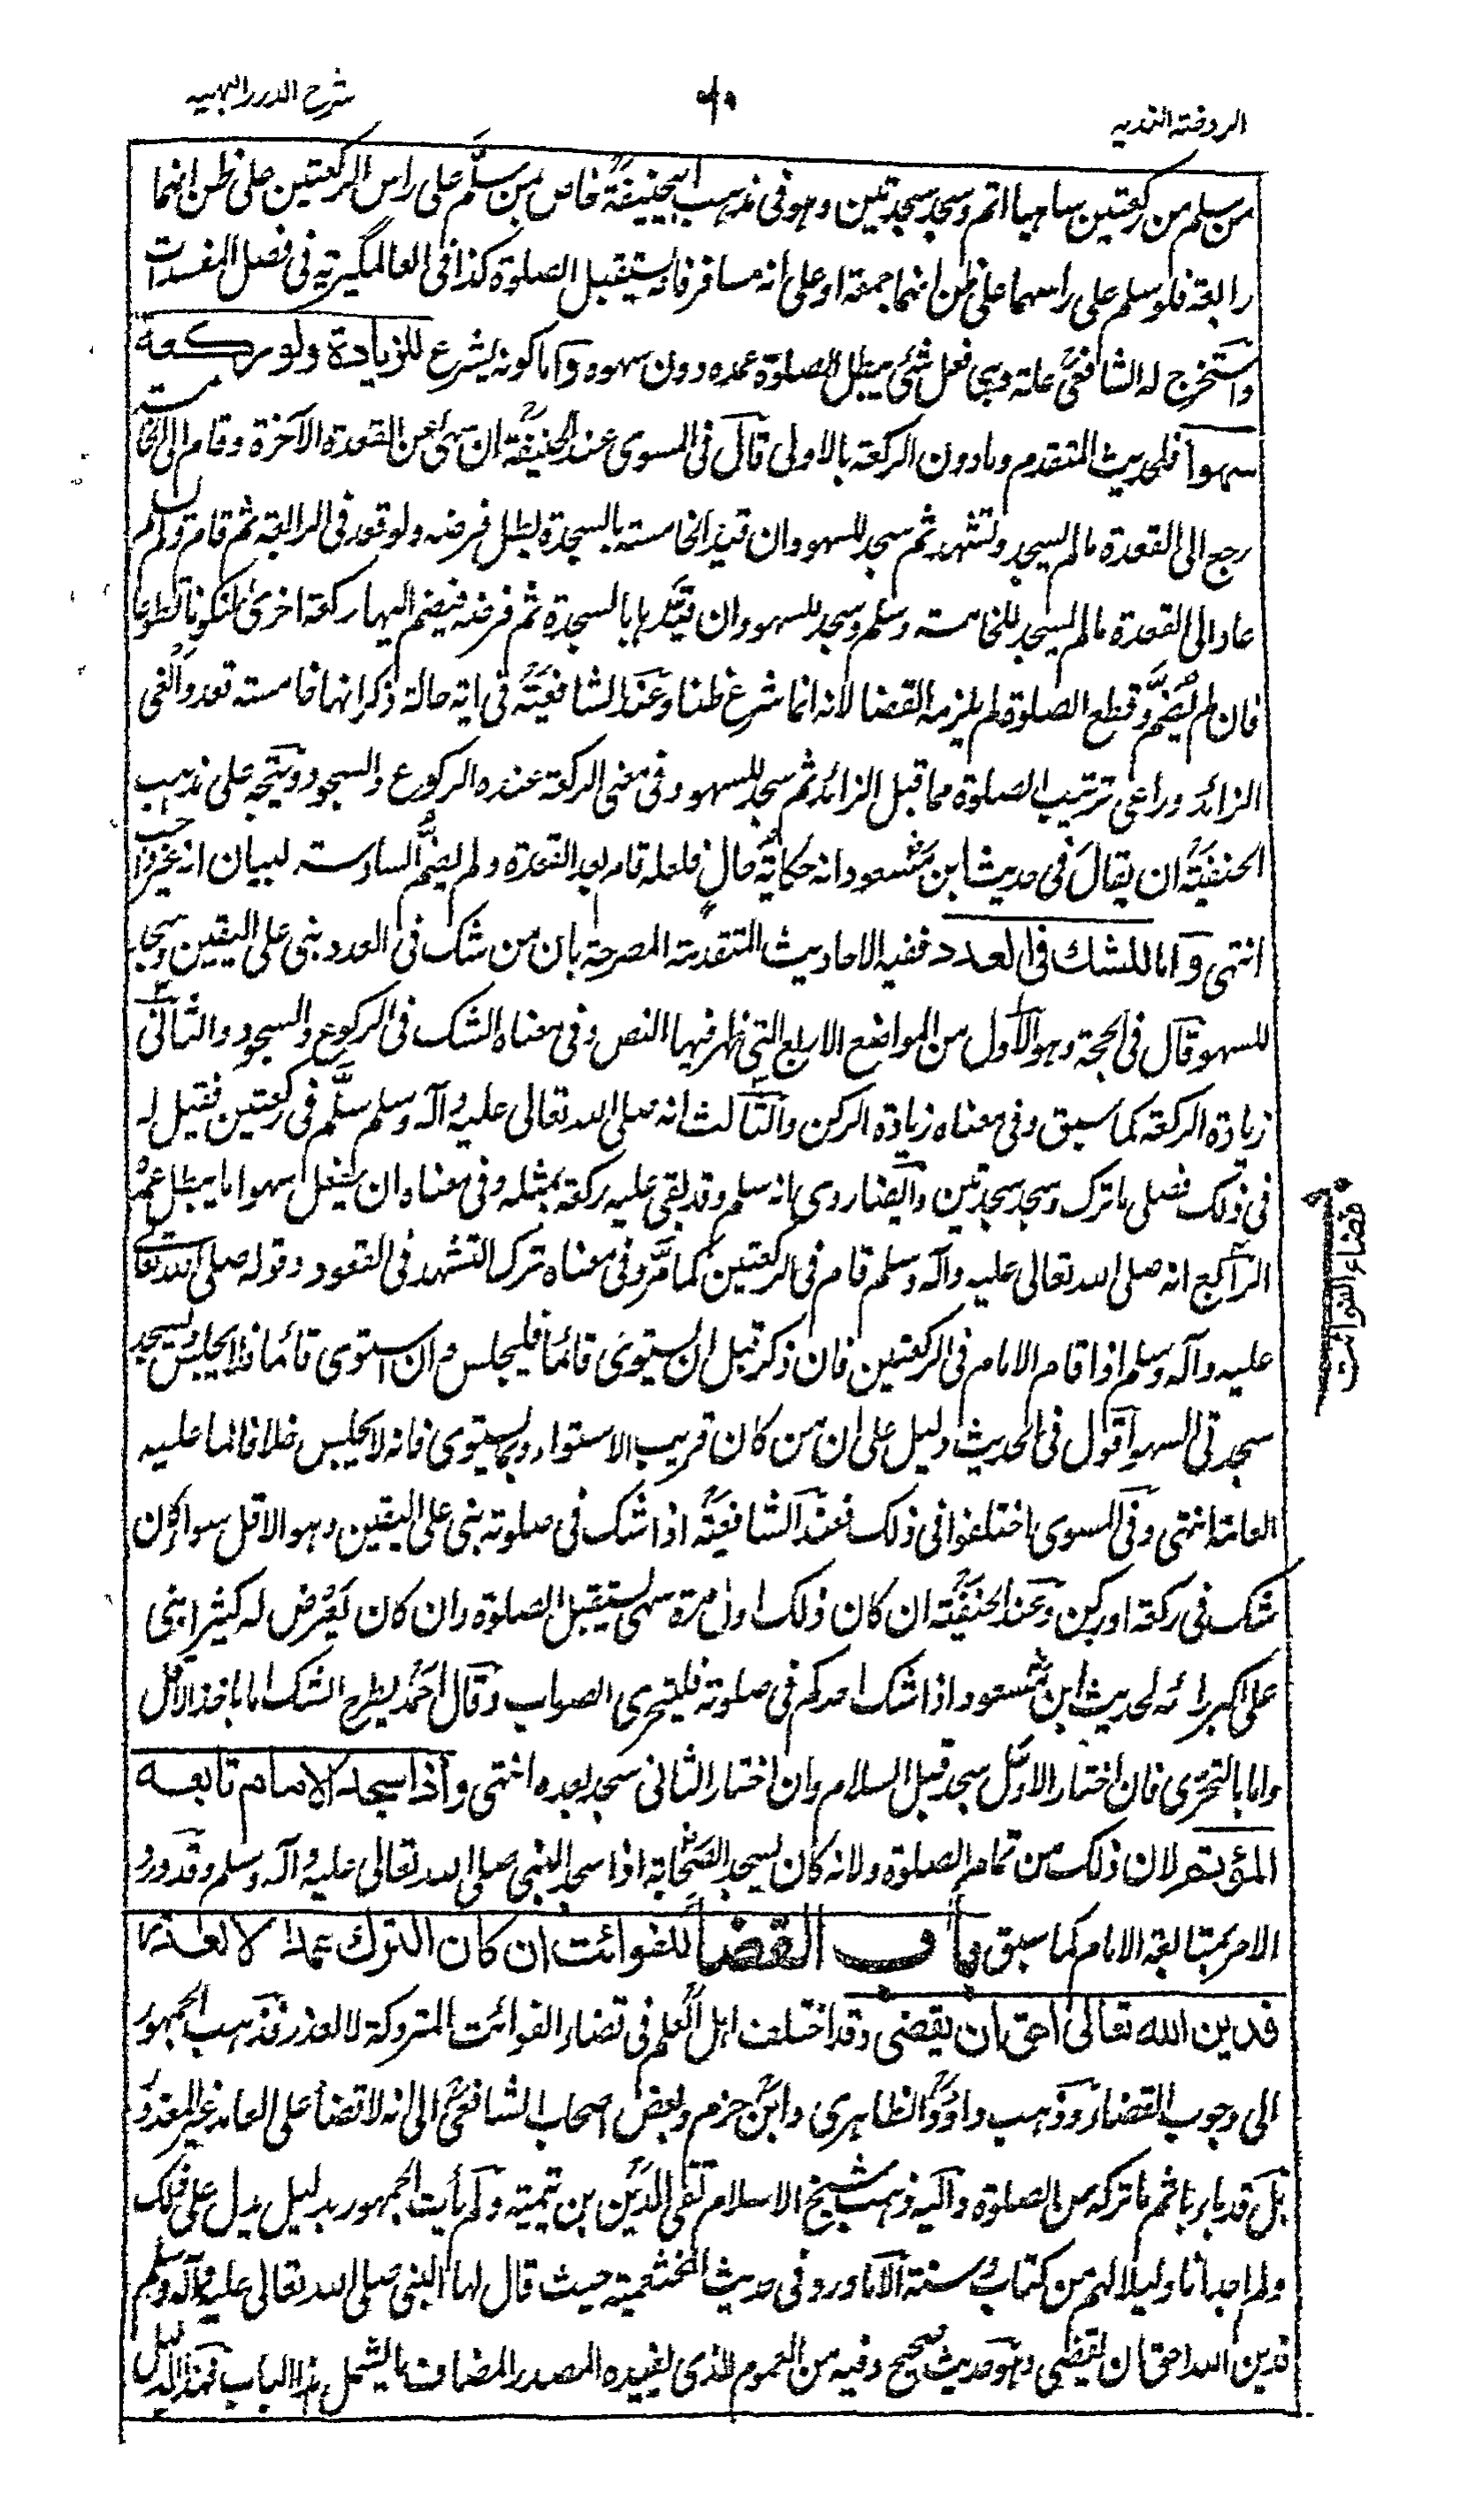 الروضة الندية
شرح الدرر البهية
من سلم من ركعتين ساهيا اتم وسجد سجدتين وهو في مذهب ابيحنيفة خاص بمن سلم على راس الركعتين على ظن انهما
رابعة فلو سلم على راسهما على ظن انهما جمعة او على انه مسافر فانه يستقبل الصلوة كذا في العالمگيرية في فصل المفسدات
واستخرج له الشافعي علة وهي فعل شئ يبطل الصلوة عمده دون سهوه واما كونه يشرع للزيادة ولو ركعة
سهوا فلحديث المتقدم وما دون الركعة بالاولى قال في المسوى عند الحنيفة ان سهى عن القعدة الآخرة وقام الى الخامسة
رجع الى القعدة ما لم يسجد وتشهد ثم سجد للسهو وان قيد الخامسة بالسجدة بطل فرضه ولو قعد في الرابعة ثم قام ولم يسلم
عاد الى القعدة ما لم يسجد للخامسة وسلم وسجد للسهو وان قيدها بالسجدة تم فرضه فيضم اليها ركعة اخرى لتكونا تطوعا
فان لم يضم وقطع الصلوة لم يلزمه القضا لانه انما شرع ظنا وعند الشافعية في اية حالة ذكر انها خامسة قعد والغى
الزائد وراعى ترتيب الصلوة مما قبل الزائد ثم سجد للسهو وفي معنى الركعة عنده الركوع والسجود ويتجه على مذهب
الحنفية ان يقال في حديث ابن مسعود انه حكاية حال فلعله قام بعد القعدة ولم يضم السادسة لبيان انه غير واجب
انتهى واما للشك في العدد ففيه الاحاديث المتقدمة المصرحة بان من شك في العدد بنى على اليقين وسجد
للسهو قال في الحجة وهو الاول من المواضع الاربع التي ظهر فيها النص وفي معناه الشك في الركوع والسجود والثاني
زيادة الركعة كما سبق وفي معناه زيادة الركن والثالث انه صلى الله تعالى عليه وآله وسلم سلم في ركعتين فقيل له
في ذلك فصلى ما ترك وسجد سجدتين وايضا روى انه سلم وقد بقى عليه ركعة بمثله وفي معناه ان يفعل سهوا ما يبطل عمده
الرابع انه صلى الله تعالى عليه وآله وسلم قام في الركعتين كما مر وفي معناه ترك التشهد في القعود وقوله صلى الله تعالى
عليه وآله وسلم اذا قام الامام في الركعتين فان ذكر قبل ان يستوى قائما فليجلس وان استوى قائما فلا يجلس ويسجد
سجدتي السهو اقول في الحديث دليل على ان من كان قريب الاستواء ولما يستوى فانه لا يجلس خلافا لما عليه
العامة انتهى وفي المسوى اختلفوا في ذلك فعند الشافعية اذا شك في صلوته بنى على اليقين وهو الاقل سواء كان
شك في ركعة او ركن وعند الحنفية ان كان ذلك اول مرة سهى يستقبل الصلوة وان كان يعرض له كثيرا بنى
على اكبر رائه لحديث ابن مسعود اذا شك احدكم في صلوته فليتحرى الصواب وقال احمد يطرح الشك اما باخذ الاقل
واما بالتحرى فان اختار الاول سجد قبل السلام وان اختار الثاني سجد بعده انتهى واذا سجد الامام تابعه
المؤتم لان ذلك من تمام الصلوة ولانه كان يسجد الصحابة اذا سجد النبي صلى الله تعالى عليه وآله وسلم وقد ورد
الامر بمتابعة الامام كما سبق باب القضا للفوائت ان كان الترك عمدا لا لعذر
فدين الله تعالى احق ان يقضى وقد اختلف اهل العلم في قضاء الفوائت المتروكة لا لعذر فذهب الجمهور
الى وجوب القضاء وذهب داود الظاهرى وابن حزم وبعض اصحاب الشافعي الى انه لا قضاء على العامد غير المعذور
بل قد باء باثم ما تركه من الصلوة واليه ذهب شيخ الاسلام تقي الدين بن تيمية ولم يأت الجمهور بدليل يدل على ذلك
ولم اجد انا دليلا لهم من كتاب وسنة الا ما ورد في حديث الخثعمية حيث قال لها النبي صلى الله تعالى عليه وآله وسلم
فدين الله احق ان يقضى وهو حديث صحيح وفيه من العموم الذى يفيده المصدر المضاف ما يشمل هذا الباب فهذا الدليل
قضاء الفوائت